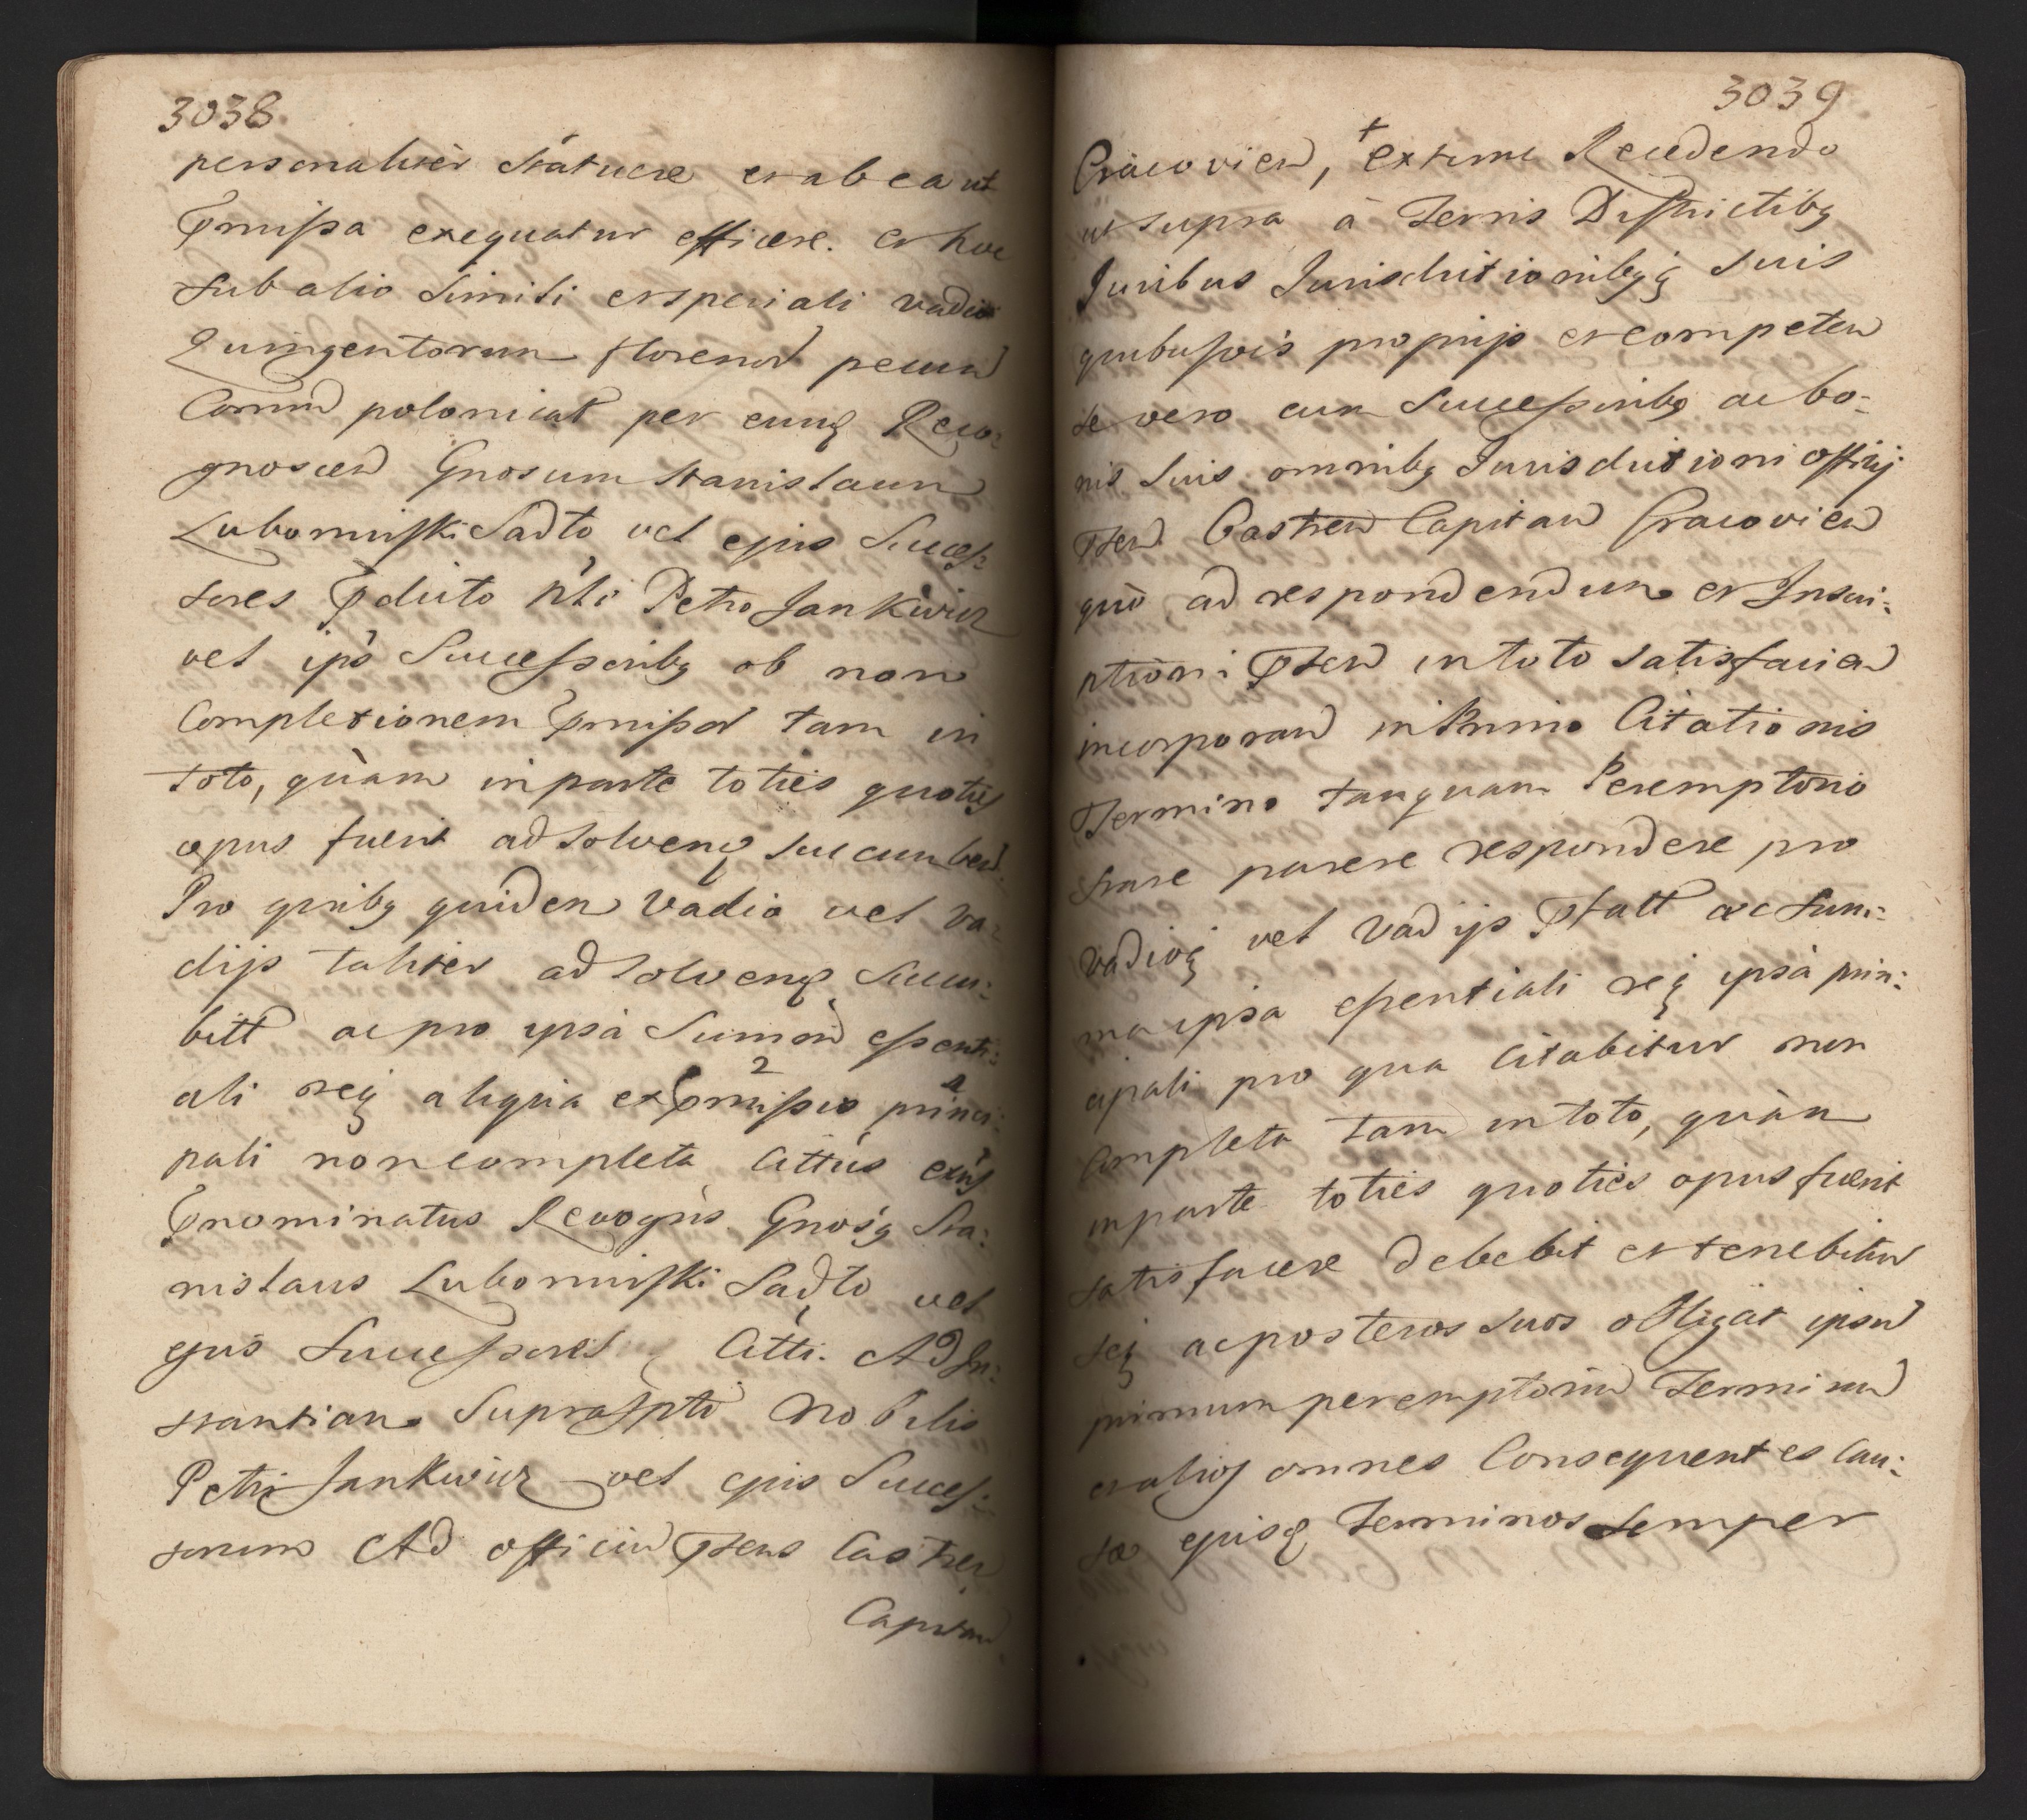 3038
personaliter státuere et ab ea ut
Pmissa exequatur efficere. et hoc
sub alio simili et speciali vadio
Quingentorum florenor pecun
Comm polonical per eunq Reco:
gnoscen Gnosum Stanislaum
Lubomirski Sadto vel ejus Succes:
sores Pdicto Nli Petro Jankiwicz
vel ips Successoribq ob non
Completionem Pmissor tam in
toto, quàm in parte toties quoties
opus fuerit adsolvenq succumben
Pro quibq quidem vadio vel va:
dijs taliter adsolvenq Succu:
bitt ac pro ipsà Summa essenti:
ali reiq aliqua ex Pmissis princi:
2
pali non completa Cittus
Pnominatus Recogns. Gnosq Sta:
nislaus Lubomirski Sadto vel
ejus Successores Citti. Ad In:
stantiam Suprascpti Nobilis
Petri Jankwicz vel ejus Succes:
sorum Ad officiu Psens Castren
Capitan
3039
Cracovien, + extunc Recedendo
ut supra à Terris Districtibq
Juribus Jurisdictionibqq suis
quibusvis proprijs et competen
se vero cum Successoribq ac bo:
nis Suis omnibq Jurisdictioni officij
Psen Castren Capitan Cracovien
quò ad respondendum et Inscri:
ptioni Psen in toto satisfacien
incorporan in Primo Citationis
Termino tanquam Peremptorio
stare parere respondere pro
vadioq vel vadijs Pfatt ac sum:
ma ipsa essentiali reiq ipsà prin:
cipali pro qua Citabitur non
Completa tam in toto, quàm
in parte toties quoties opus fuerit
satisfacere debebit et tenebitur
seq ac posteros suos obligat ipsum
primum peremptoriu Terminu
et alios omnes Consequentes Cau:
sæ ejusq Terminos semper